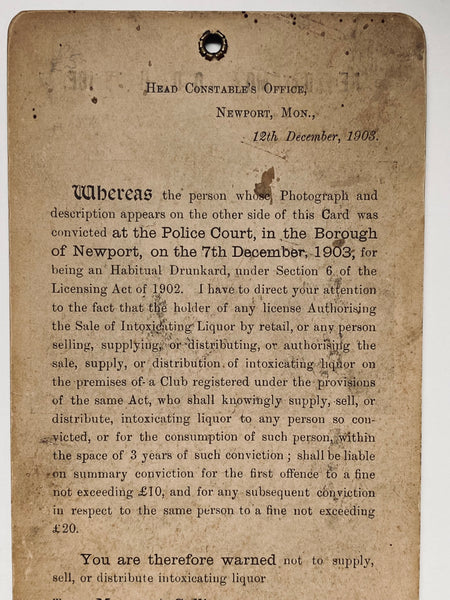 Head Constable's Office,
Newport, Mon.,
12th December, 1903.
Whereas the person whose Photograph and
description appears on the other side of this Card was
convicted at the Police Court, in the Borough
of Newport, on the 7th December, 1903, for
being an Habitual Drunkard, under Section 6 of the
Licensing Act of 1902. I have to direct your attention
to the fact that the holder of any license Authorising
the Sale of Intoxicating Liquor by retail, or any person
selling, supplying, or distributing, or authorising the
sale, supply, or distribution of intoxicating liquor on
the premises of a Club registered under the provisions
of the same Act, who shall knowingly supply, sell, or
distribute, intoxicating liquor to any person so con-
victed, or for the consumption of such person, within
the space of 3 years of such conviction ; shall be liable
on summary conviction for the first offence to a fine
not exceeding £10, and for any subsequent conviction
in respect to the same person to a fine not exceeding
£20.
You are therefore warned not to supply,
sell, or distribute intoxicating liquor